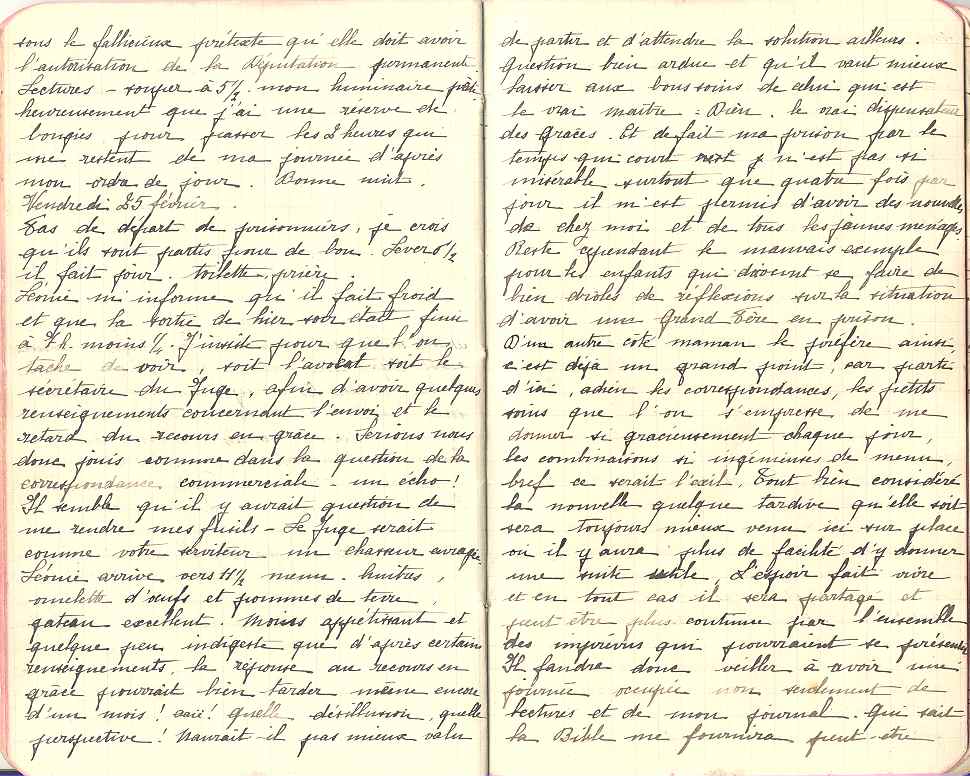 sous le fallicieux prétexte qu'elle doit avoir
l'autorisation de la Députation permanent.
Lectures - souper à 5 1/2. mon luminaire
heureusement que j'ai une réserve de
bougies pour passer les 2 heures qui
me restent de ma journée d'après
mon ordre de jour. Bonne nuit.
Vendredi 25 février.
Pas de départ de prisonniers, je crois
qu'ils sont partis pour de bon. Lever 6 1/2
il fait jour. toilette, prière.
Léonie m'informe qu'il fait froid
et que la sortie de hier soir était finie
à 7 h. moins 1/4. J'insiste pour que l'on
tâche de voir, soit l'avocat soit le
sécrétaire du Juge, afin d'avoir quelques
renseignements concernant l'envoi et le
retard du recours en grâce. Serions nous
donc jouis comme dans la question de la
correspondance commerciale - un écho!
Il semble qu'il y aurait question de
me rendre mes fusils - Le Juge serait
comme votre serviteur un chasseur enragé.
Léonie arrive vers 11 1/2 menu. huîtres,
omelette d'œufs et pommes de terre,
gateau excellent. Moins appétissant et
quelque peu indigeste que d'après certains
renseignements, la réponse au recours en
grâce pourrait bien tarder même encore
d'un mois! aïe! quelle désillusion, quelle
perspective! N'aurait-il pas mieux valu
de partir et d'attendre la solution ailleurs.
Question bien ardue et qu'il vaut mieux
laisser aux bons soins de celui qui est
le vrai maître Dieu. le vrai dispensateur
des Grâces. Et de fait ma prison par le
temps qui court n'est pas si
misérable surtout que quatre fois par
jour il m'est permis d'avoir des nouvelles
de chez moi et de tous les jeunes ménages
Reste cependant le mauvais exemple
pour les enfants qui doivent se faire de
bien drôles de réflexions sur la situation
d'avoir une Grand Père en prison.
D'un autre côté maman le préfère ainsi,
c'est déjà un grand point, car parti
d'ici, adieu les correspondances, les petits
soins que l'on s'empresse de me
donner si gracieusement chaque jour,
les combinaisons si ingénieuses de menu,
bref ce serait l'exil. Tout bien considéré
la nouvelle quelque tardive qu'elle soit
sera toujours mieux venu ici sur place
où il y aura plus de facilité d'y donner
une suite utile. L'espoir fait vivre
et en tout cas il sera partagé et
peut être plus continue par l'ensemble
des imprévus qui pourraient se présenter
Il faudra donc veiller à avoir une
journée occupée non seulement de
lectures et de mon journal. Qui sait
la Bible me fournira peut-être